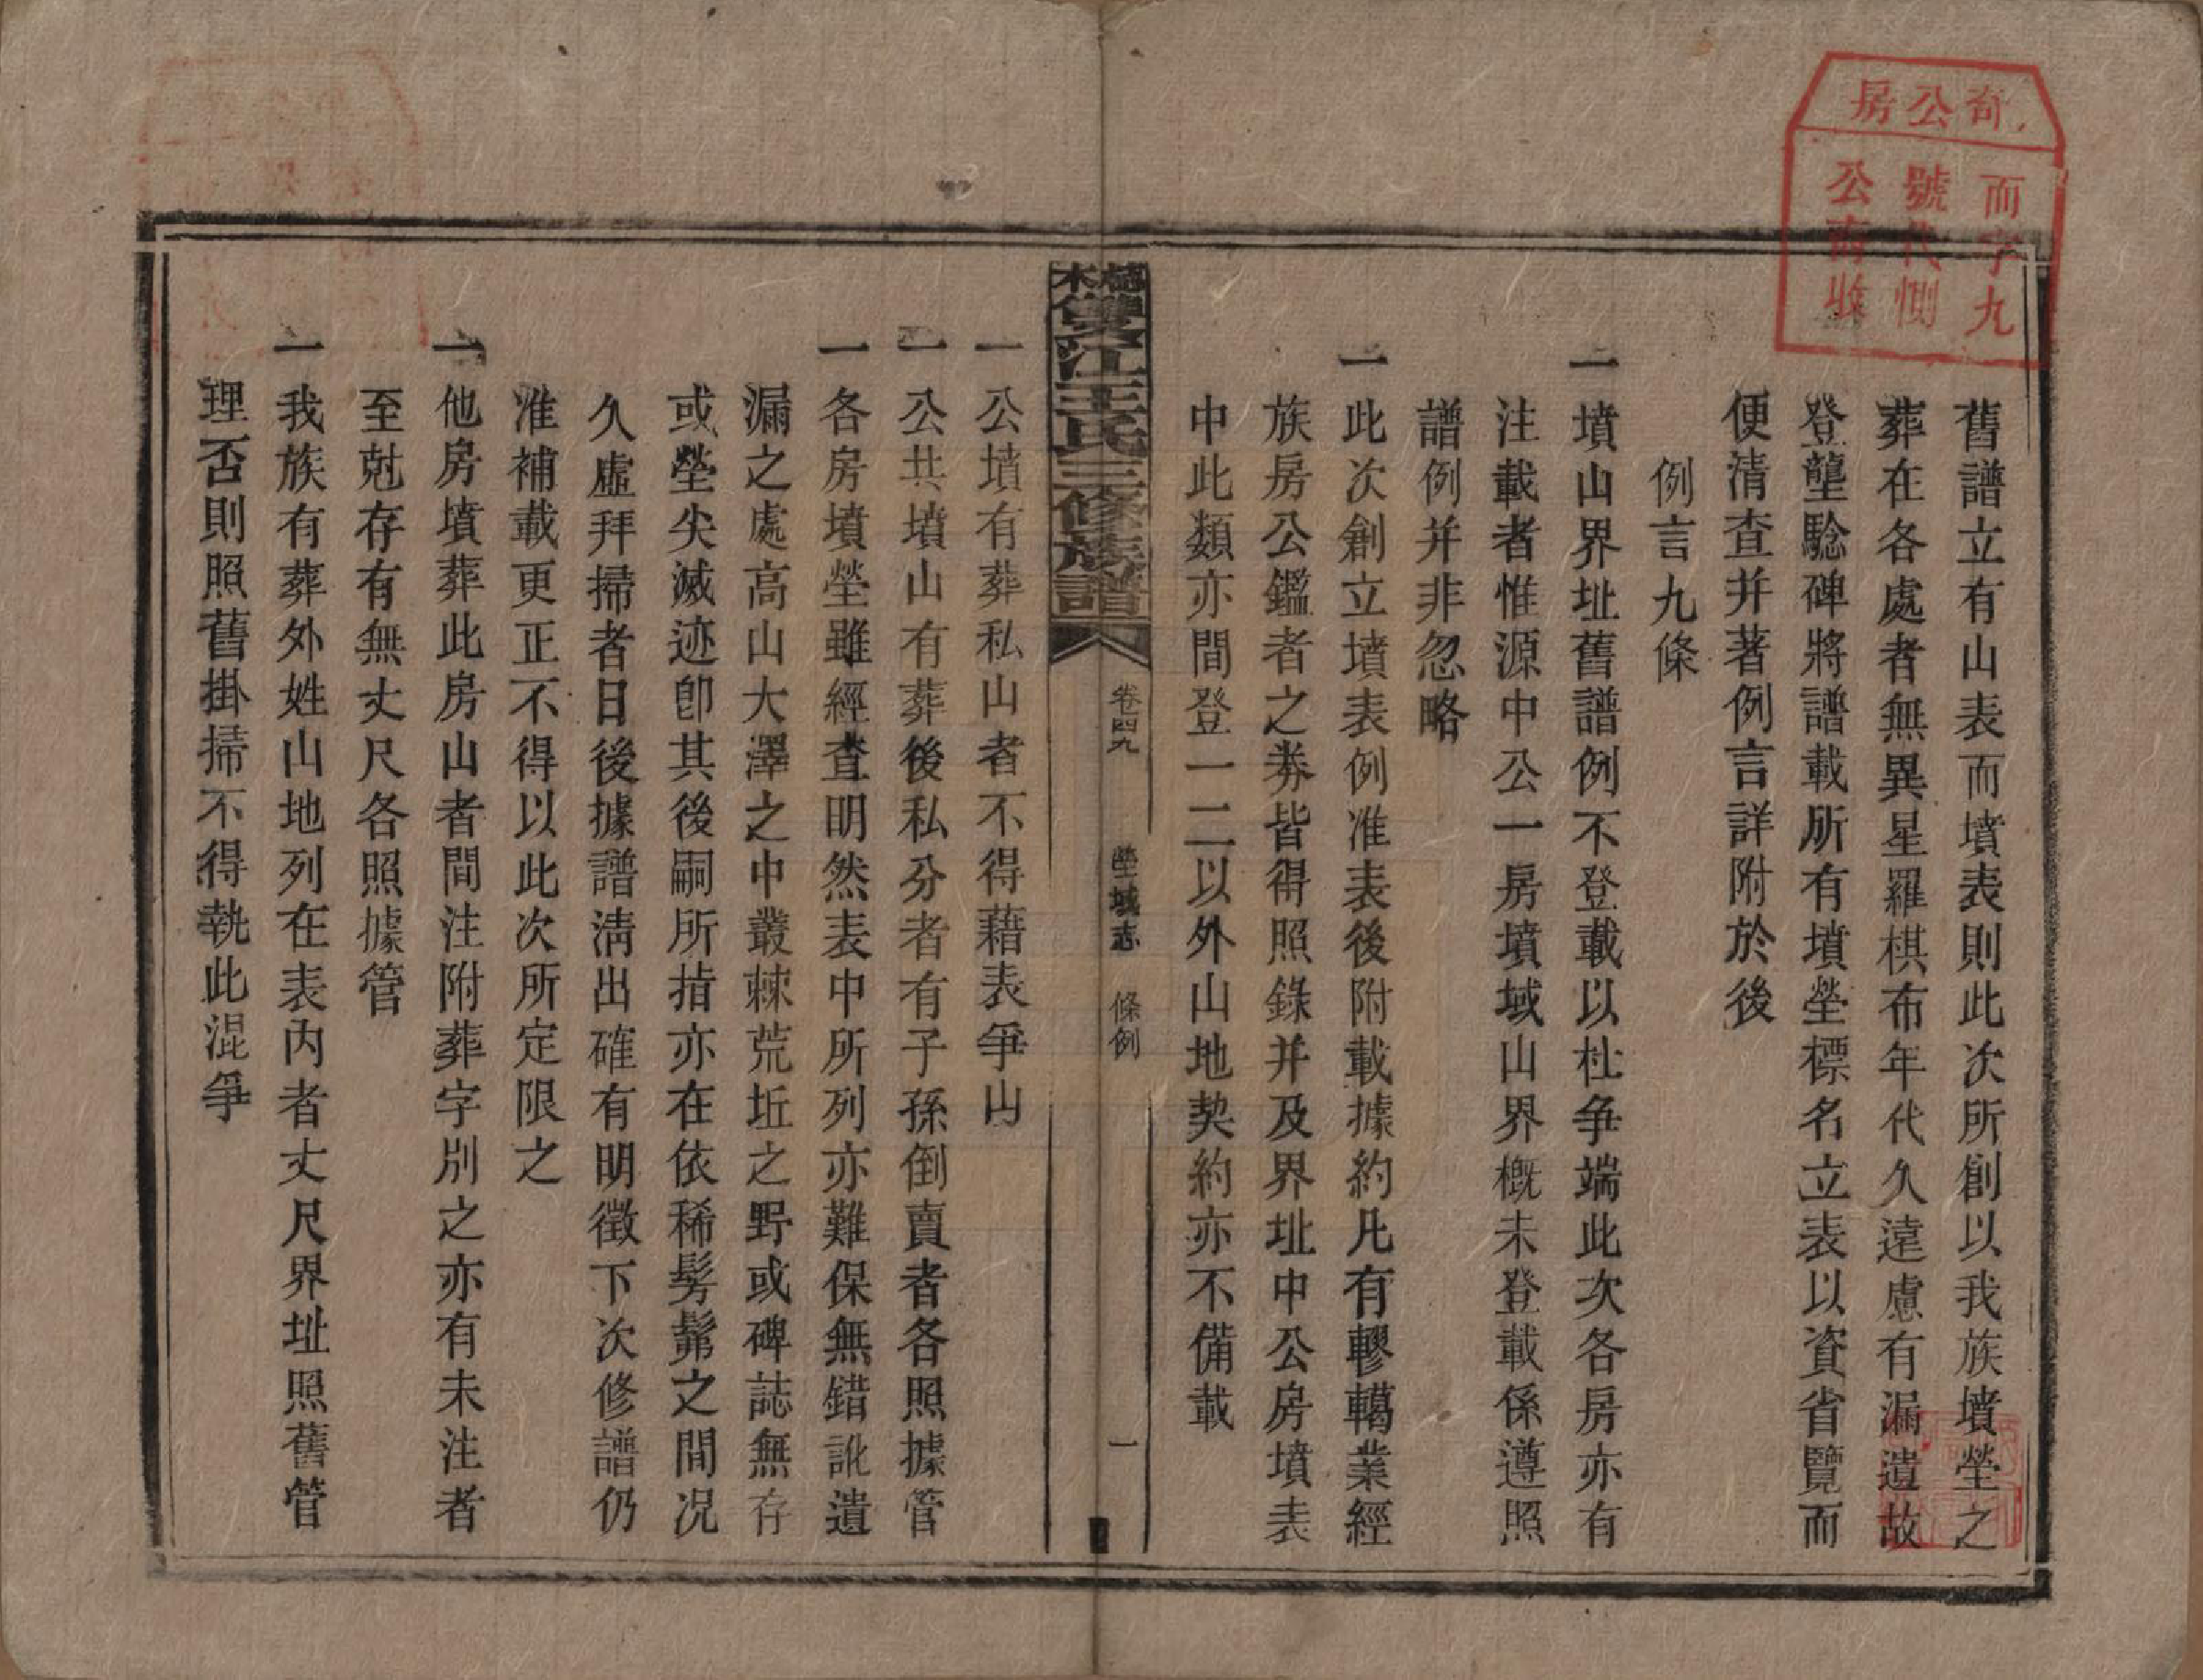 舊譜立有山表而墳表則此次所創以我族墳塋之
葬在各處者無異星羅棋布年代久遠慮有漏遺故
登壟驗碑將譜載所有墳塋標名立表以資省覽而
便清查并著例言詳附於後
例言九條
一墳山界址舊譜例不登載以杜爭端此次各房亦有
注載者惟源中公一房墳域山界概未登載係遵照
譜例并非忽略
一此次創立墳表例准表後附載據約凡有轇轕業經
族房公鑑者之券皆得照錄并及界址中公房墳表
中此類亦間登一二以外山地契約亦不備載
雙江王氏三修族譜
卷四九
塋域志 條例
一
一公墳有葬私山者不得藉表爭山
一公共墳山有葬後私分者有子孫倒賣者各照據管
一各房墳塋雖經查明然表中所列亦難保無錯訛遺
漏之處高山大澤之中叢棘荒坵之野或碑誌無存
或塋尖滅迹卽其後嗣所指亦在依稀髣髴之間况
久虛拜掃者日後據譜淸出確有明徵下次修譜仍
准補載更正不得以此次所定限之
一他房墳葬此房山者間注附葬字別之亦有未注者
至尅存有無丈尺各照據管
一我族有葬外姓山地列在表內者丈尺界址照舊管
理否則照舊掛掃不得執此混爭
奇公房
而字九
號代惻
公南收